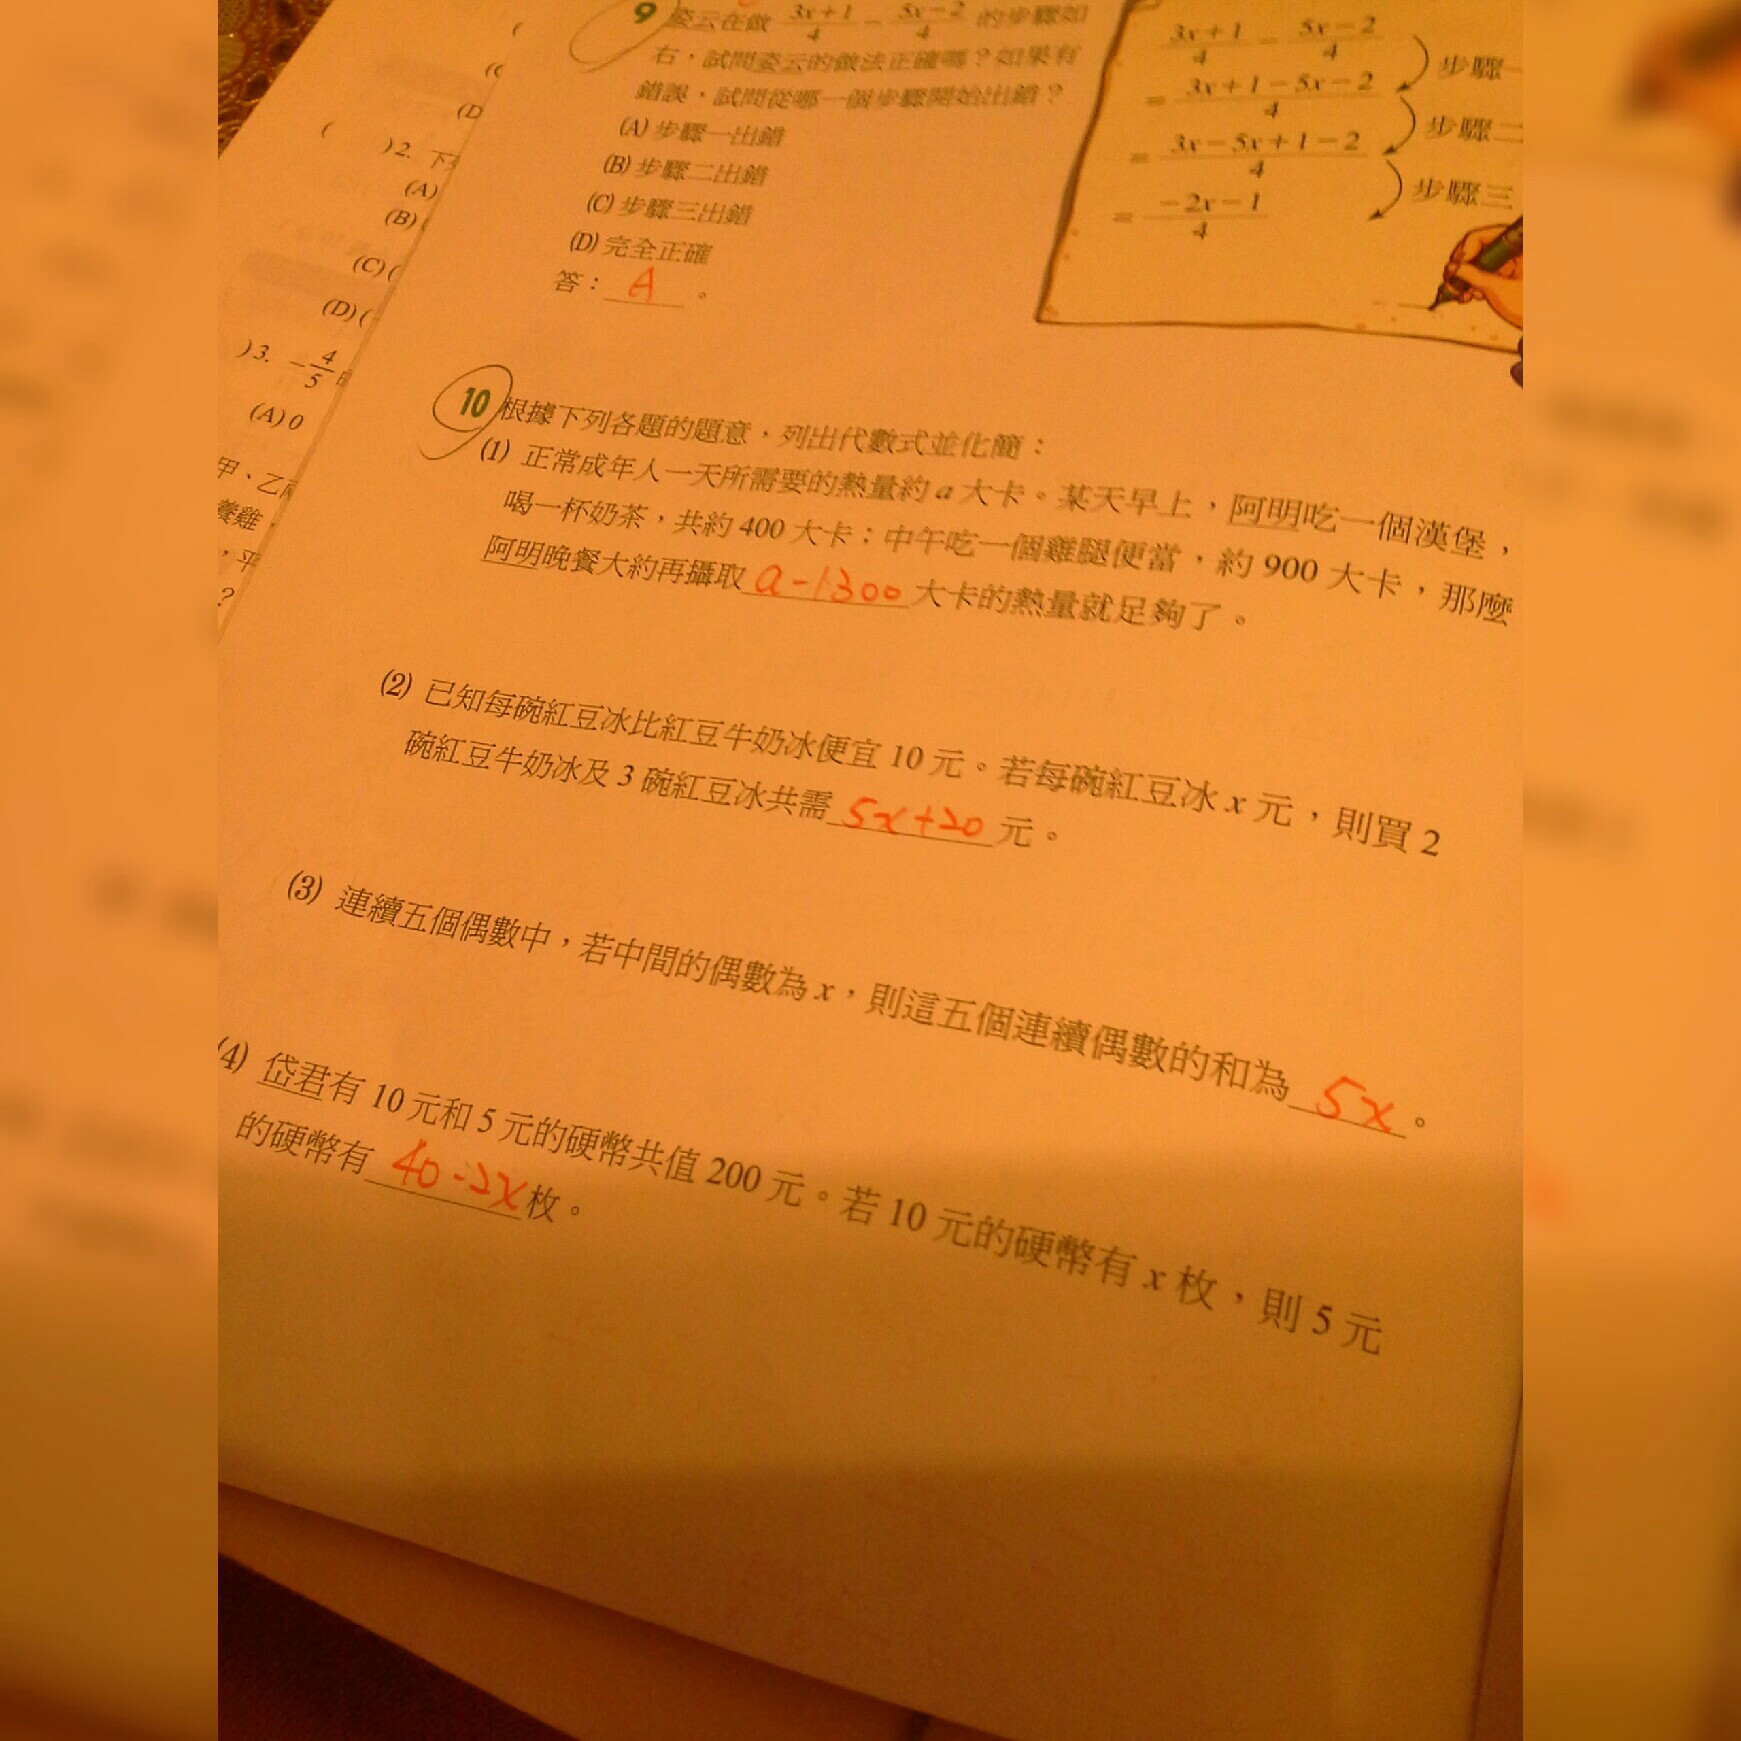 9 姿云在做 3x+1/4 － 5x－2/4 的步驟如
右，試問姿云的做法正確嗎？如果有
錯誤，試問從哪一個步驟開始出錯？
(A) 步驟一出錯
(B) 步驟二出錯
(C) 步驟三出錯
(D) 完全正確
答：A。
3x+1/4 － 5x－2/4
= 3x+1－5x－2/4
= 3x－5x+1－2/4
= －2x－1/4
步驟一
步驟二
步驟三
(D
( )2. 下列
(A)
(B)(
(C)(
(D)(
)3. －4/5
(A) 0
甲、乙
養雞，
，平
？
10 根據下列各題的題意，列出代數式並化簡：
(1) 正常成年人一天所需要的熱量約 a 大卡。某天早上，阿明吃一個漢堡，
喝一杯奶茶，共約 400 大卡；中午吃一個雞腿便當，約 900 大卡，那麼
阿明晚餐大約再攝取 a-1300 大卡的熱量就足夠了。
(2) 已知每碗紅豆冰比紅豆牛奶冰便宜 10 元。若每碗紅豆冰 x 元，則買 2
碗紅豆牛奶冰及 3 碗紅豆冰共需 5x+20 元。
(3) 連續五個偶數中，若中間的偶數為 x，則這五個連續偶數的和為 5x。
(4) 岱君有 10 元和 5 元的硬幣共值 200 元。若 10 元的硬幣有 x 枚，則 5 元
的硬幣有 40-2x 枚。